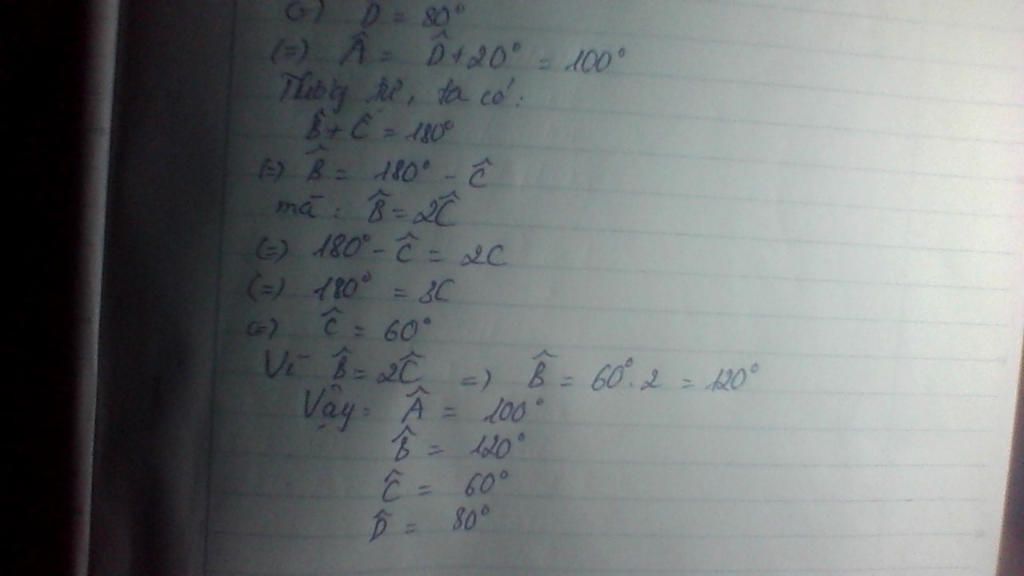 (=) D̂ = 80°
(=) Â = D̂ + 20° = 100°
Tương tự, ta có:
B̂ + Ĉ = 180°
(=) B̂ = 180° - Ĉ
mà: B̂ = 2Ĉ
(=) 180° - Ĉ = 2C
(=) 180° = 3C
(=) Ĉ = 60°
Vì B̂ = 2Ĉ =) B̂ = 60°. 2 = 120°
Vậy: Â = 100°
B̂ = 120°
Ĉ = 60°
D̂ = 80°